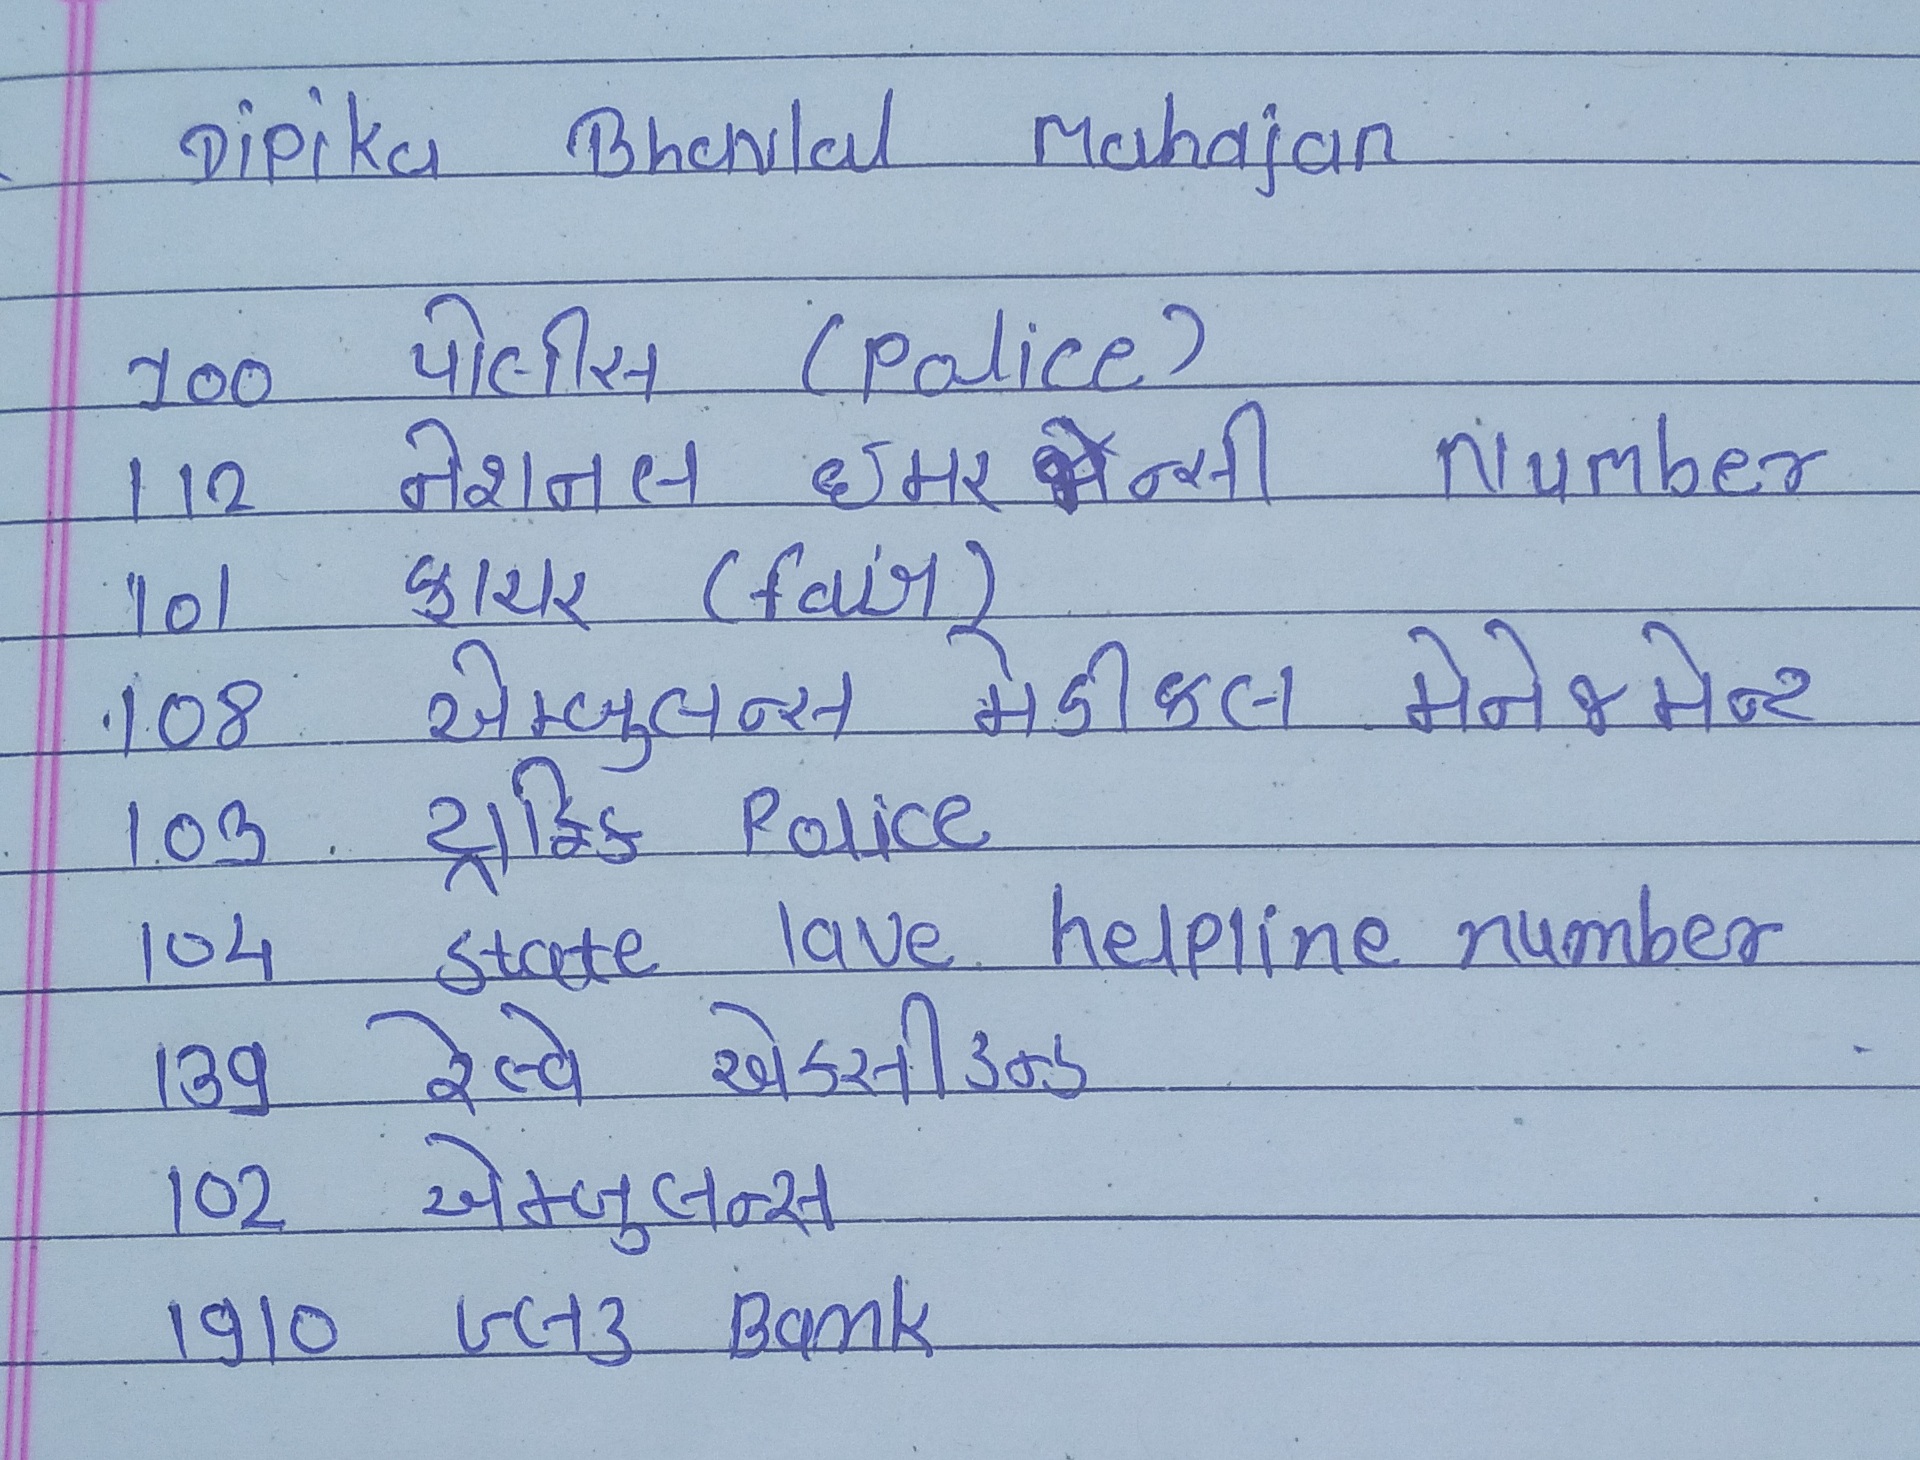 Dipika Bhavlal Mahajan
100 પોલીસ (Police)
112 નેશનલ ઈમરજેન્સી Number
101 ફાયર
108 એમ્બ્યુલન્સ મેડીકલ મેનેજમેન્ટ
103 ટ્રાફિક Police
104 state lave helpline number
139 રેલ્વે એકસીડન્ડ
102 એમ્બ્યુલન્સ
1910 બ્લડ Bank